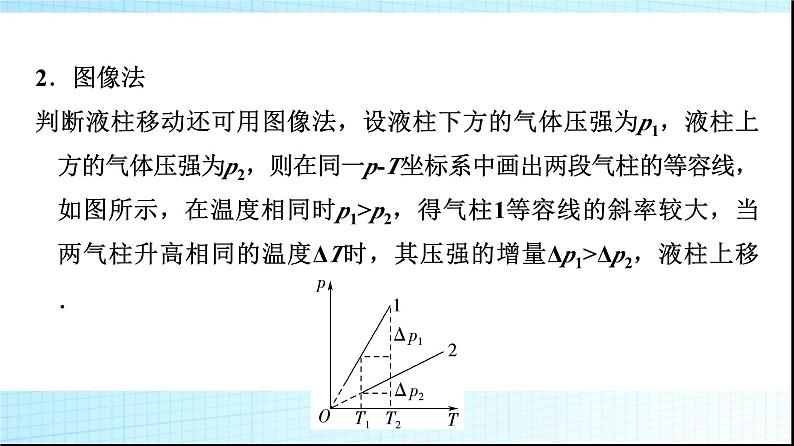 2．图像法
判断液柱移动还可用图像法，设液柱下方的气体压强为p₁，液柱上
方的气体压强为p₂，则在同一p-T坐标系中画出两段气柱的等容线，
如图所示，在温度相同时p₁>p₂，得气柱1等容线的斜率较大，当
两气柱升高相同的温度ΔT时，其压强的增量Δp₁>Δp₂，液柱上移
．
p
1
Δp₁
2
Δp₂
O T₁ T₂ T